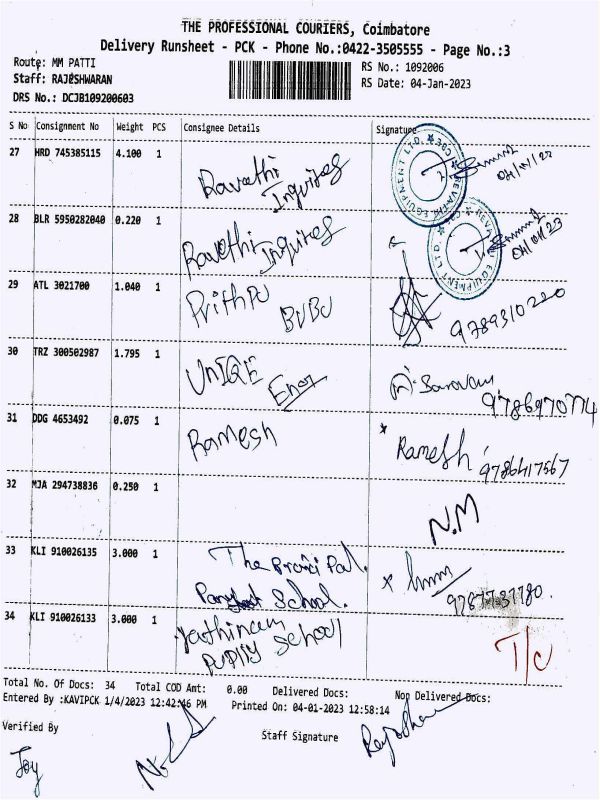 THE PROFESSIONAL COURIERS, Coimbatore
Delivery Runsheet - PCK - Phone No.:0422-3505555 - Page No.:3
Route: MM PATTI RS No.: 1092006
Staff: RAJESHWARAN RS Date: 04-Jan-2023
DRS No.: DCJB109200603
S No Consignment No Weight PCS Consignee Details Signature
27 HRD 745385115 4.100 1
Ravathi
REVATHI EQUIPMENT LTD.
28 BLR 5950282040 0.220 1
Ravathi
04/01/23
REVATHI EQUIPMENT LTD.
29 ATL 3021700 1.040 1
Prithpu BUBU
9789310220
30 TRZ 300502987 1.795 1
UNIQE
9786970774
31 DDG 4653492 0.075 1
Ramesh Ramesh
9786417567
32 MJA 294738836 0.250 1
N.M
33 KLI 910026135 3.000 1
The
School.
34 KLI 910026133 3.000 1
School
T/C
Total No. Of Docs: 34 Total COD Amt: 0.00 Delivered Docs: Non Delivered Docs:
Entered By :KAVIPCK 1/4/2023 12:42:46 PM Printed On: 04-01-2023 12:58:14
Verified By Staff Signature
Joy